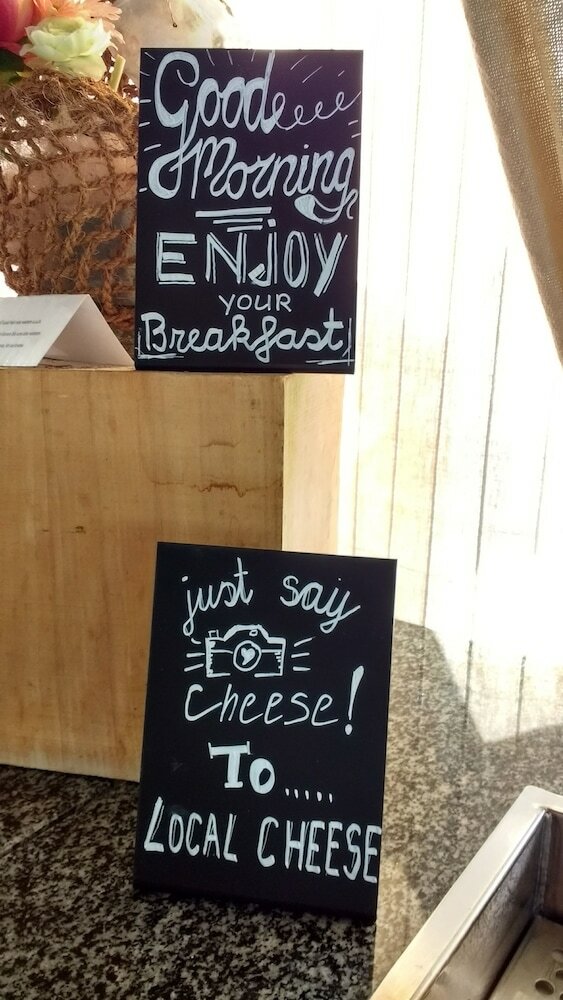 Good
Morning
ENJOY
YOUR
Breakfast!
just say
Cheese!
To.....
LOCAL CHEESE